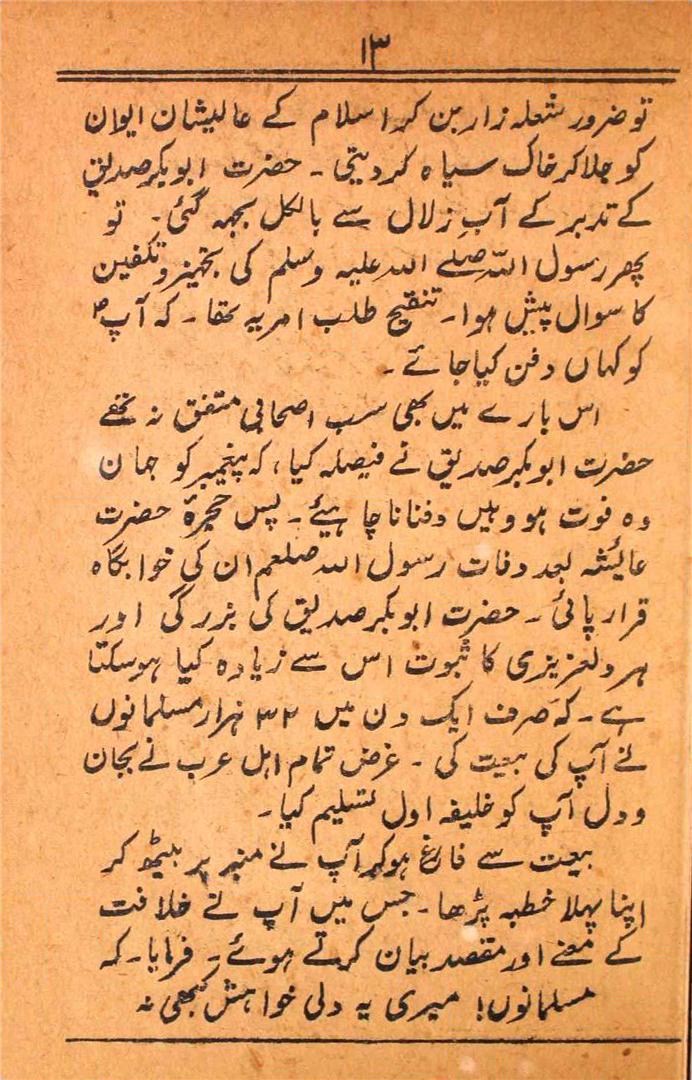 ۱۳
تو ضرور شعلہ زار بن کر اسلام کے عالیشان ایوان
کو جلا کر خاک سیاہ کر دیتی ۔ حضرت ابوبکر صدیق
کے تدبر کے آبِ زلال سے بالکل بجھہ گئی ۔ تو
پھر رسول اللہ صلے اللہ علیہ وسلم کی تجہیز و تکفین
کا سوال پیش ہوا ۔ تنقیح طلب امر یہ تھا ۔ کہ آپؐ
کو کہاں دفن کیا جائے ۔
اس بارے میں بھی سب اصحابی متفق نہ تھے
حضرت ابوبکر صدیق نے فیصلہ کیا ، کہ پیغمبر کو جہان
وہ فوت ہو وہیں دفنانا چاہیئے ۔ پس حجرۂ حضرت
عائیشہ بعد وفات رسول اللہ صلعم ان کی خوابگاہ
قرار پائی ۔ حضرت ابوبکر صدیق کی بزرگی اور
ہر دلعزیزی کا ثبوت اس سے زیادہ کیا ہوسکتا
ہے ۔ کہ صرف ایک دن میں ۳۲ ہزار مسلمانوں
نے آپ کی بیعت کی ۔ غرض تمام اہل عرب نے بجان
و دل آپ کو خلیفہ اول تسلیم کیا ۔
بیعت سے فارغ ہو کر آپ نے منبر پر بیٹھ کر
اپنا پہلا خطبہ پڑھا ۔ جس میں آپ نے خلافت
کے معنے اور مقصد بیان کرتے ہوئے ۔ فرمایا ۔ کہ
مسلمانوں! میری یہ دلی خواہش کبھی نہ